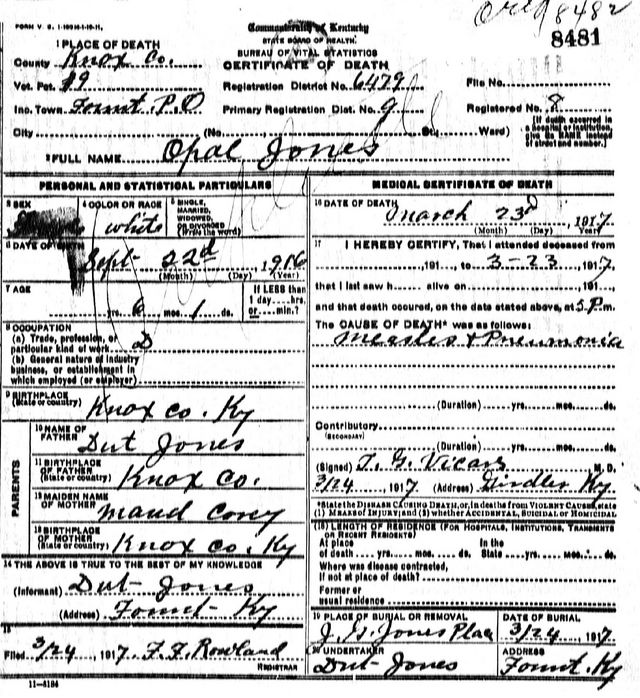 FORM V. S. 1-100M-1-19-11.
Commonwealth of Kentucky
8482
8481
STATE BOARD OF HEALTH.
BUREAU OF VITAL STATISTICS
CERTIFICATE OF DEATH
1 PLACE OF DEATH
County Knox Co.
Vot. Pct. 19
Registration District No. 6479
File No.
Inc. Town Fount P.O
Primary Registration Dist. No. 9
Registered No. 8
City (No. St., Ward)
[If death occurred in a hospital or institution, give its NAME instead of street and number.]
2 FULL NAME Opal Jones
PERSONAL AND STATISTICAL PARTICULARS
3 SEX
4 COLOR OR RACE white
5 SINGLE, MARRIED, WIDOWED OR DIVORCED (Write the word)
6 DATE OF BIRTH
Sept 22d 1916
(Month) (Day) (Year)
7 AGE
yrs. 6 mos. 1 ds.
If LESS than 1 day....hrs. or....min.?
8 OCCUPATION
(a) Trade, profession, or particular kind of work D
(b) General nature of industry business, or establishment in which employed (or employer)
9 BIRTHPLACE
(State or country) Knox co. Ky
PARENTS
10 NAME OF FATHER Dut Jones
11 BIRTHPLACE OF FATHER (State or country) Knox Co.
12 MAIDEN NAME OF MOTHER Maud Corey
13 BIRTHPLACE OF MOTHER (State or country) Knox Co. Ky
14 THE ABOVE IS TRUE TO THE BEST OF MY KNOWLEDGE
(Informant) Dut Jones
(Address) Fount Ky
15
Filed 3/24, 1917 F. F. Rowland
REGISTRAR
11-4184
MEDICAL CERTIFICATE OF DEATH
16 DATE OF DEATH
March 23d 1917
(Month) (Day) (Year)
17 I HEREBY CERTIFY, That I attended deceased from
191..., to 3-23, 1917,
that I last saw h alive on 191...,
and that death occured, on the date stated above, at 5 P.m.
The CAUSE OF DEATH* was as follows:
Measles & Pneumonia
(Duration) yrs. mos. ds.
Contributory
(SECONDARY)
(Duration) yrs. mos. ds.
(Signed) T. G. Vicars M. D.
3/24, 1917 (Address) Girdler Ky
*State the DISEASE CAUSING DEATH, or, in deaths from VIOLENT CAUSES, state (1) MEANS OF INJURY; and (2) whether ACCIDENTAL, SUICIDAL or HOMICIDAL
(18) LENGTH OF RESIDENCE (FOR HOSPITALS, INSTITUTIONS, TRANSIENTS OR RECENT RESIDENTS)
At place of death yrs. mos. ds. In the State yrs. mos. ds.
Where was disease contracted,
if not at place of death?
Former or
usual residence
19 PLACE OF BURIAL OR REMOVAL
J. G. Jones Plac
DATE OF BURIAL
3/24, 1917
20 UNDERTAKER
Dut Jones
ADDRESS
Fount, Ky